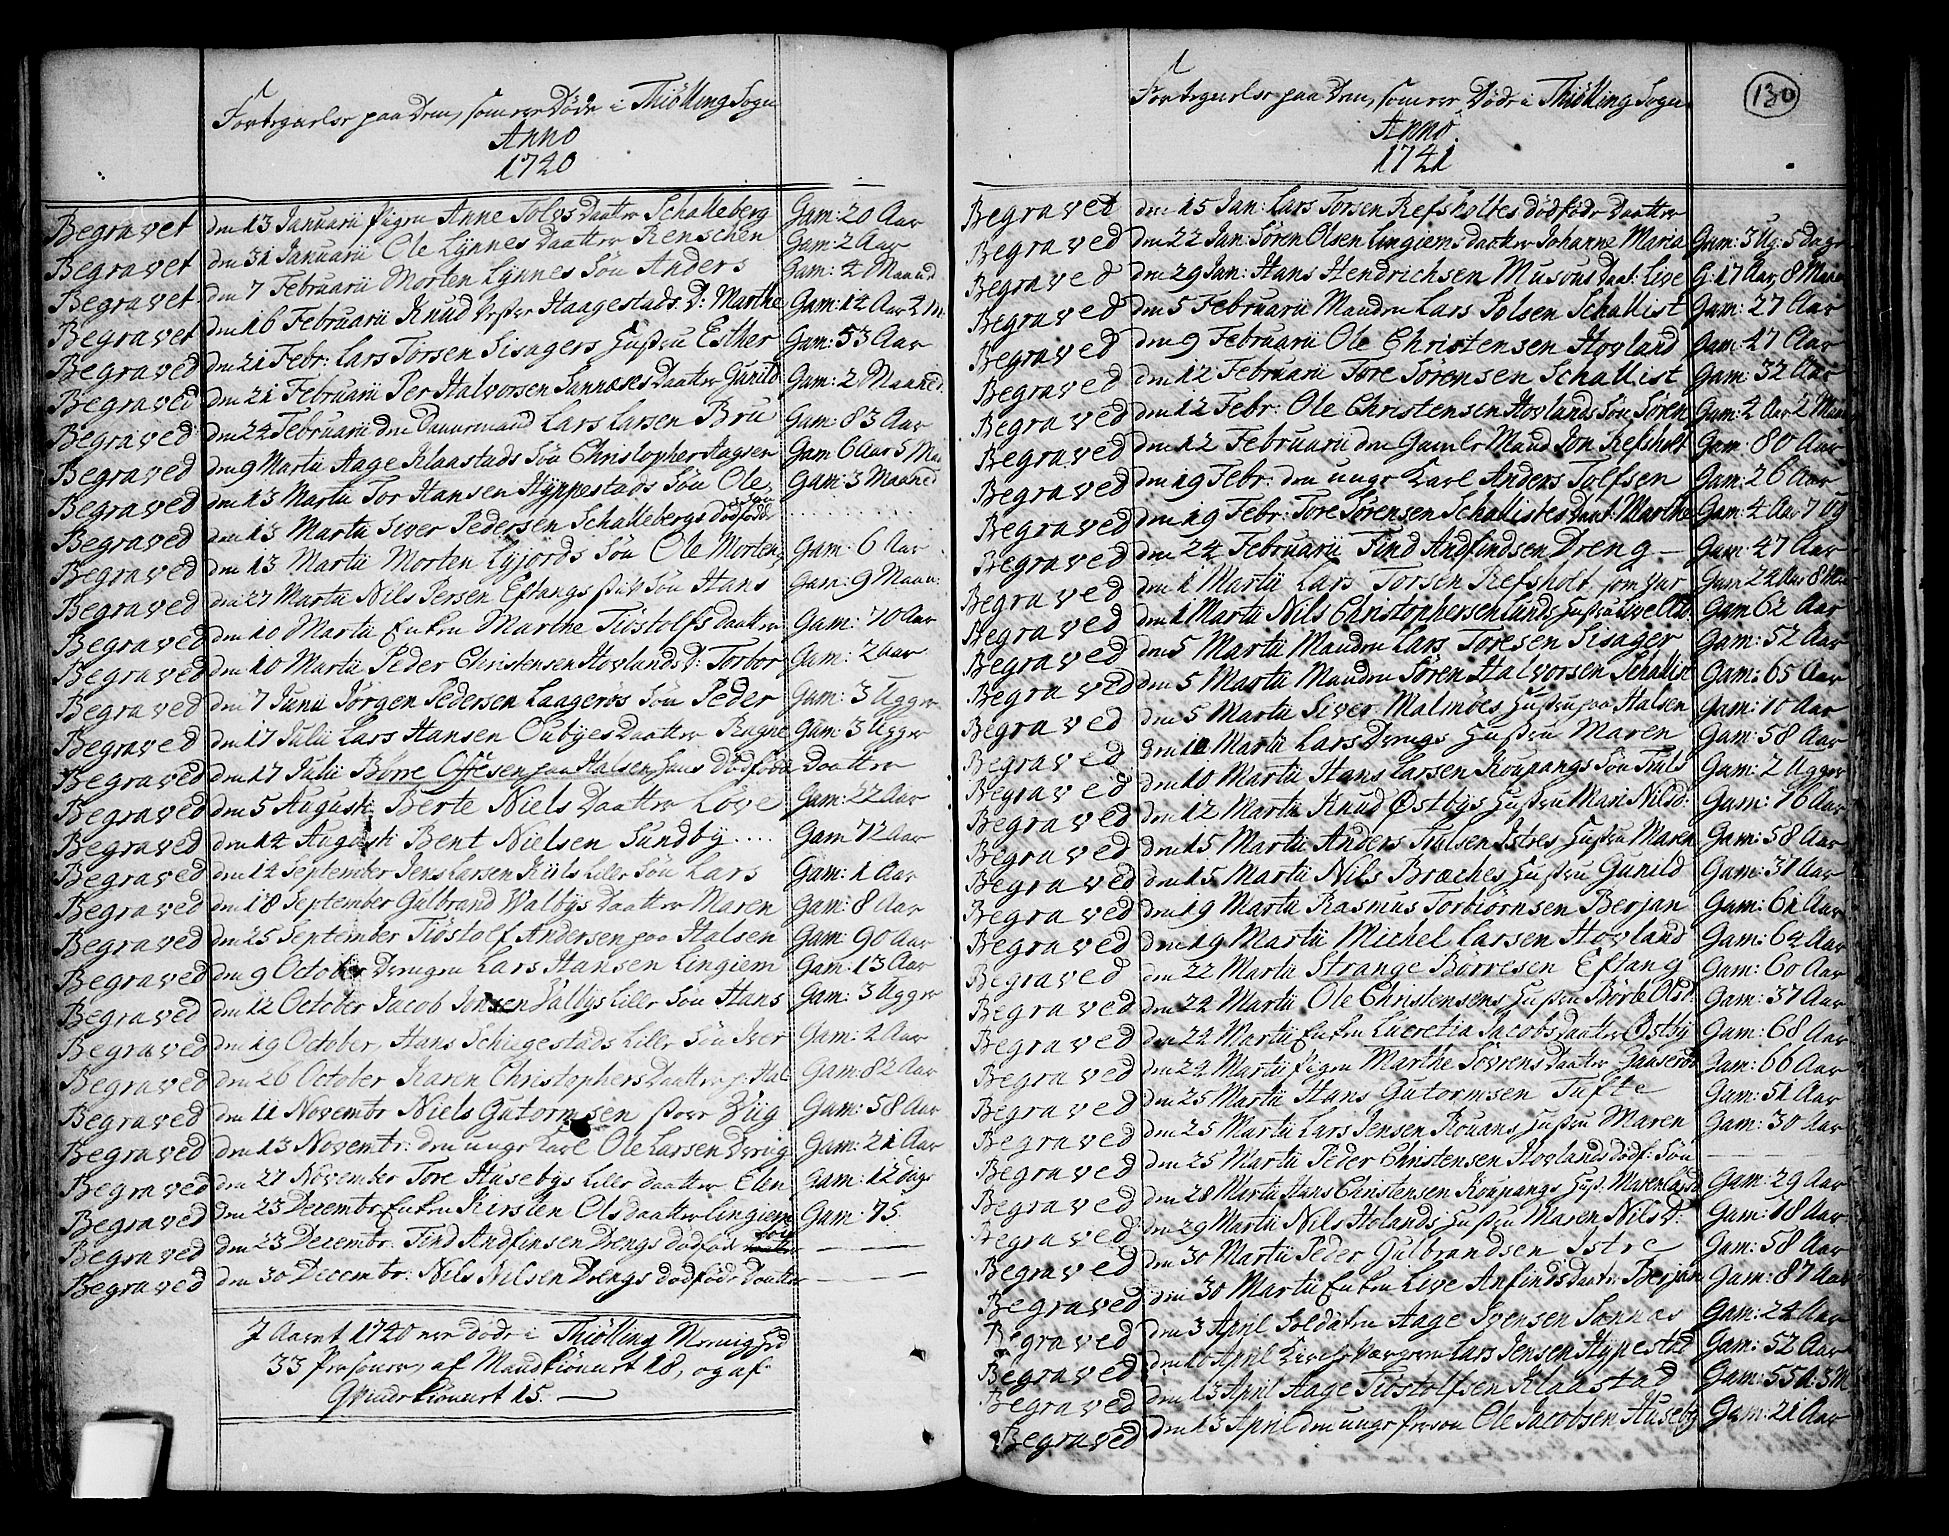 Fortegnelse paa Dem, som ere Døde i Thiölling Sogn
Anno
1740
Begravet den 13 Januarii pigen Anne Tolvsdaatter Schalleberg Gam: 20 Aar
Begravet den 31 Januarii Ole Lÿnnes Daatter Renschen Gam: 2 Aar
Begravet den 7 Februarii Morten Lÿnnes Sön Anders Gam: 4 Maaned
Begravet den 16 Februarii Knud Haagestads D: Marthe Gam: 12 Aar 2 M.
Begraved den 21 Febr: Lars Torsen Sisagers Hustru Esther Gam: 53 Aar
Begraved den 21 Februarii Per Halvorsen Sannæses Daatter Gunild Gam: 2 Maaned
Begraved den 24 Februarii den Dannemand Lars Larsen Bru Gam: 83 Aar
Begraved den 9 Martii Aage Klaastads Sön Christopher Aagsen Gam 6 Aar 5 Maa
Begraved den 13 Martii Tor Hansen Hÿppestads Sön Ole Gam: 3 Maaned
Begraved den 13 Martii Siver Pedersen Schallebergs dödföde Sön
Begraved den 13 Martii Morten Lÿjords Sön Ole Morten, Gam: 6 Aar
Begraved den 27 Martii Nils Persen Eftangs Sön Hans Gam: 9 Maan:
Begraved den 10 Martii Enken Marthe Tiöstolfs daatter Gam: 70 Aar
Begraved den 10 Martii Peder Christensen Hovlands D: Torbor Gam: 2 Aar
Begraved den 7 Junii Jörgen Pedersen Laagerøs Sön Peder Gam: 3 Ugger
Begraved den 17 Julii Lars Hansen Oubÿes Daatter Ragne Gam: 3 Ugger
Begraved den 17 Julii Børre Offesen paa Halsen hans dödföde Daatter
Begraved den 5 Augusti Berte Niels Daatter Löve Gam: 22 Aar
Begraved den 14 Augusti Bent Nielsen Sundbÿ.... Gam 72 Aar
Begraved den 14 September Jens Larsen Kiils liller Sön Lars Gam: 1 Aar
Begraved den 18 September Gulbrand Walbÿs Daatter Maren Gam: 8 Aar
Begraved den 25 September Tiöstolf Andersen paa Halsen Gam: 90 Aar
Begraved den 9 October Drengen Lars Hansen Lingiem Gam: 13 Aar
Begraved den 12 October Jacob Jensen Valbÿs liller Sön Hans Gam: 3 Uggr
Begraved den 19 October, Hans Schiegestads Liller Sön Iver Gam: 2 Aar
Begraved den 26 October Karen Christophers Daatter p: Hal Gam: 82 Aar
Begraved den 11 Novembr Niels Gutormsen Gam: 58 Aar
Begraved den 13 Novembr: den unge karl Ole Larsen Dreng Gam: 21 Aar
Begraved den 27 November Tore Husebÿs liller daatter Elen Gam: 12 dage
Begraved den 23 Decembr Enken Kirsten Olsdaatter Lingiem Gam: 75.
Begraved den 23 Decembr: Find Andfinsen Drengs dödföde Sön
Begraved den 30 Decembr: Nils Nilsen Drengs dödföde Daatter
I Aaret 1740 ere døde i Thiölling Menighed
33 Personer, af Mandkiönnet 18, og af
Qvindekiönnet 15.
130
Fortegnelse paa Dem, som ere Døde i Thiölling Sogn
Anno
1741
Begravet den 15 Jan: Lars Torsen Refsholtes dödföde Daatter
Begraved den 22 Jan: Sören Olsen Lingiems daatter Johanne Maria Gam: 3 Ug: 5 dage
Begraved den 29 Jan: Hans Hendrichsen Daat: Live G: 17 Aar 8 Maan
Begraved den 5 Februarii Manden Lars Polsen Schallist Gam: 27 Aar
Begraved den 9 Februarii Ole Christensen Hovland Gam 47 Aar
Begraved den 12 Februarii Tore Sörensen Schallist Gam: 32 Aar
Begraved den 12 Febr: Ole Christensen Hovlands Sön Sören Gam: 4 Aar 2 Maan
Begraved den 12 Februarii den Gamle Mand Jon Refsholt Gam 80 Aar
Begraved den 19 Febr: den unge karl Anders Tolfsen Gam: 26 Aar
Begraved den 19 Febr: Tore Sörensen Schallistes Daat: Marthe Gam: 4 Aar 7 Ug
Begraved den 24 Februarii Find Andfindsen Dreng Gam: 47 Aar
Begraved den 1 Martii Lars Torsen Refsholt
Begraved den 1 Martii Nils Christophersen Lunds Hustru Gam 62 Aar
Begraved den 5 Martii Manden Lars Toresen Sisager Gam: 52 Aar
Begraved den 5 Martii Manden Sören Halvorsen Schallist Gam: 65 Aar
Begraved den 5 Martii Siver Malmöes Hustru paa Halsen Gam: 70 Aar
Begraved den 10 Martii Lars Drengs Hustru Maren Gam: 58 Aar
Begraved den 10 Martii Hans Larsen Koupangs Sön Gam: 2 Ugger
Begraved den 12 Martii Knud Østbÿs Hustru Mari Nilsd: Gam: 76 Aar
Begraved den 15 Martii Anders Istres Hustru Maren Gam: 58 Aar
Begraved den 15 Martii Nils Braches Hustru Gunild Gam: 37 Aar
Begraved den 19 Martii Rasmus Torbiornsen Berjan Gam: 61 Aar
Begraved den 19 Martii Michel Larsen Hovland Gam: 64 Aar
Begraved den 22 Martii Strange Börresen Eftang Gam: 60 Aar
Begraved den 24 Martii Ole Christensens Hustru Börte Olsd: Gam: 37 Aar
Begraved den 24 Martii Enken Lucretia Jacobs daatter Østbÿ Gam: 68 Aar
Begraved den 24 Martii pigen Marthe Sörens daatter Gaaserød Gam: 66 Aar
Begraved den 25 Martii Hans Gutormsen Tufte Gam: 51 Aar
Begraved den 25 Martii Lars Jensen Hustru Maren Gam: 30 Aar
Begraved den 25 Martii Peder Christensen Hovlands dödf: Sön
Begraved den 28 Martii Hans Christensen Koupangs Hust: Maren Gam: 29 Aar
Begraved den 29 Martii Nils Holands Hustru Maren Nils D: Gam: 18 Aar
Begraved den 30 Martii Peder Gulbrandsen Istre Gam: 58 Aar
Begraved den 30 Martii Enken Live Anfinds Daatr: Berjan Gam: 87 Aar
Begraved den 3 April Soldaten Aage Svensen Sannas Gam: 24 Aar
Begraved den 10 April Kirche Værgeren Lars Jensen Hÿpestad Gam: 52 Aar
Begraved den 13 April Aage Tiöstolfsen Klaastad Gam: 55 A: 3 M
Begraved den 13 April den unge Person Ole Jacobsen Husebÿ Gam: 21 Aar